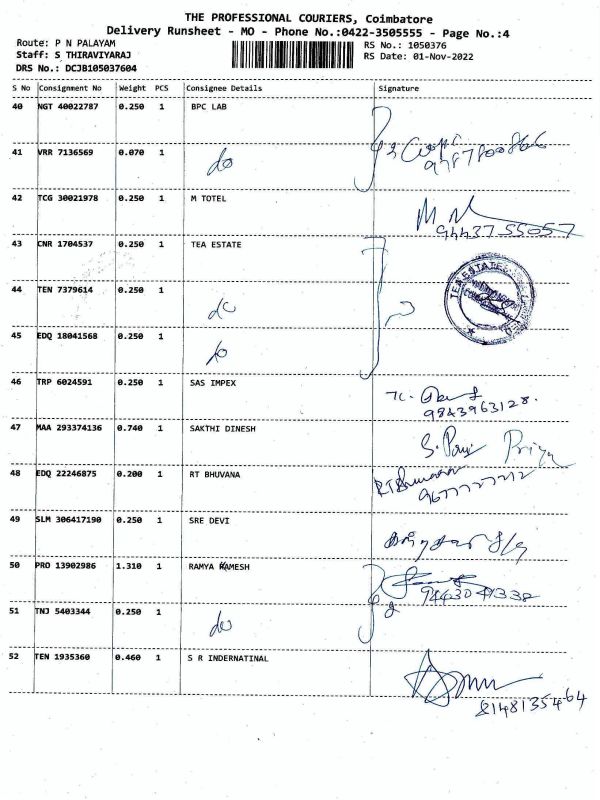 THE PROFESSIONAL COURIERS, Coimbatore
Delivery Runsheet - MO - Phone No.:0422-3505555 - Page No.:4
Route: P N PALAYAM
Staff: S THIRAVIYARAJ
DRS No.: DCJB105037604
RS No.: 1050376
RS Date: 01-Nov-2022
S No Consignment No Weight PCS Consignee Details Signature
40 NGT 40022787 0.250 1 BPC LAB
41 VRR 7136569 0.070 1 do
42 TCG 30021978 0.250 1 M TOTEL
9443755057
43 CNR 1704537 0.250 1 TEA ESTATE
44 TEN 7379614 0.250 1 do
45 EDQ 18041568 0.250 1 do
46 TRP 6024591 0.250 1 SAS IMPEX
9843963128.
47 MAA 293374136 0.740 1 SAKTHI DINESH
S. Priya
48 EDQ 22246875 0.200 1 RT BHUVANA
RT Bhuvana
9677727212
49 SLM 306417190 0.250 1 SRE DEVI
50 PRO 13902986 1.310 1 RAMYA RAMESH
9443041338
51 TNJ 5403344 0.250 1 do
52 TEN 1935360 0.460 1 S R INDERNATINAL
8148135464